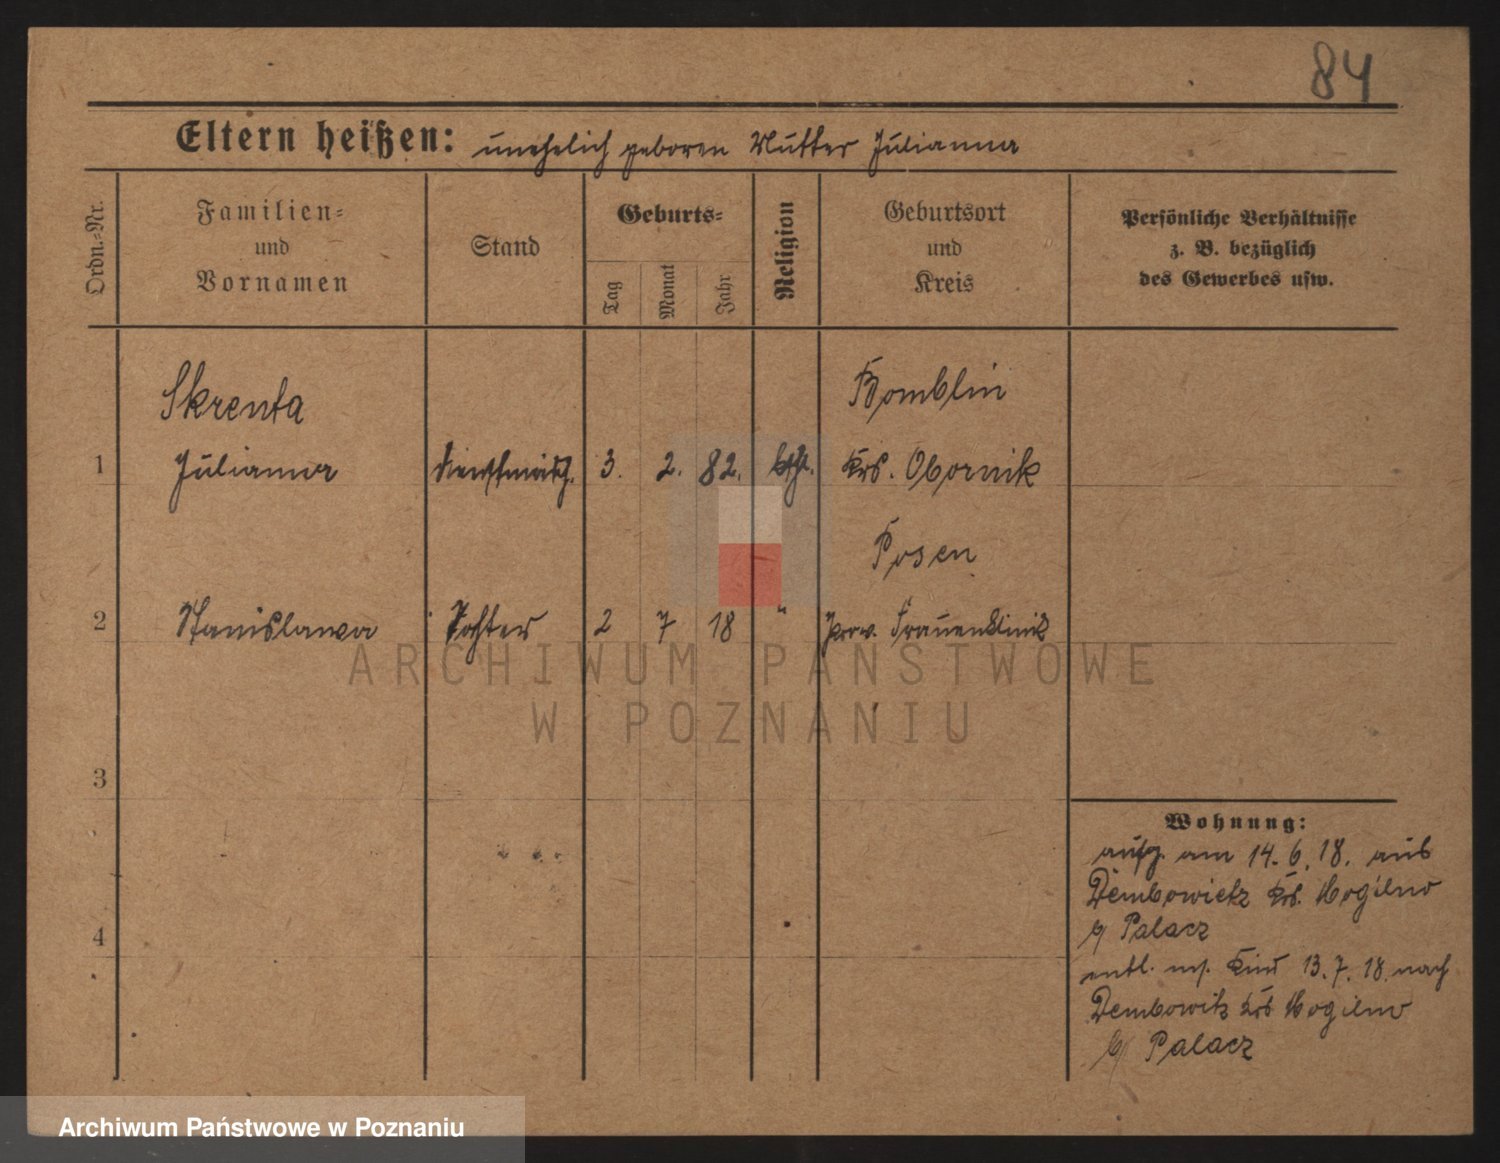 84
Eltern heißen: unehelich geboren Mutter Julianna
Ordn.-Nr.
Familien-
und
Vornamen
Stand
Geburts-
Tag
Monat
Jahr
Religion
Geburtsort
und
Kreis
Persönliche Verhältnisse
z. B. bezüglich
des Gewerbes usw.
Skrenta
Romblin
1 Julianna Dienstmädch. 3. 2. 82. kth. Krs. Obornik
Posen
2 Stanislawa Tochter 2 7 18 " prov. Frauenklinik
ARCHIWUM PAŃSTWOWE
W POZNANIU
3
Wohnung:
aufg. am 14.6.18. aus
Dembowietz Krs. Mogilno
b/ Palacz
4
entl. m. Kind 13.7.18. nach
Dembowitz Krs Mogilno
b/ Palacz
Archiwum Państwowe w Poznaniu